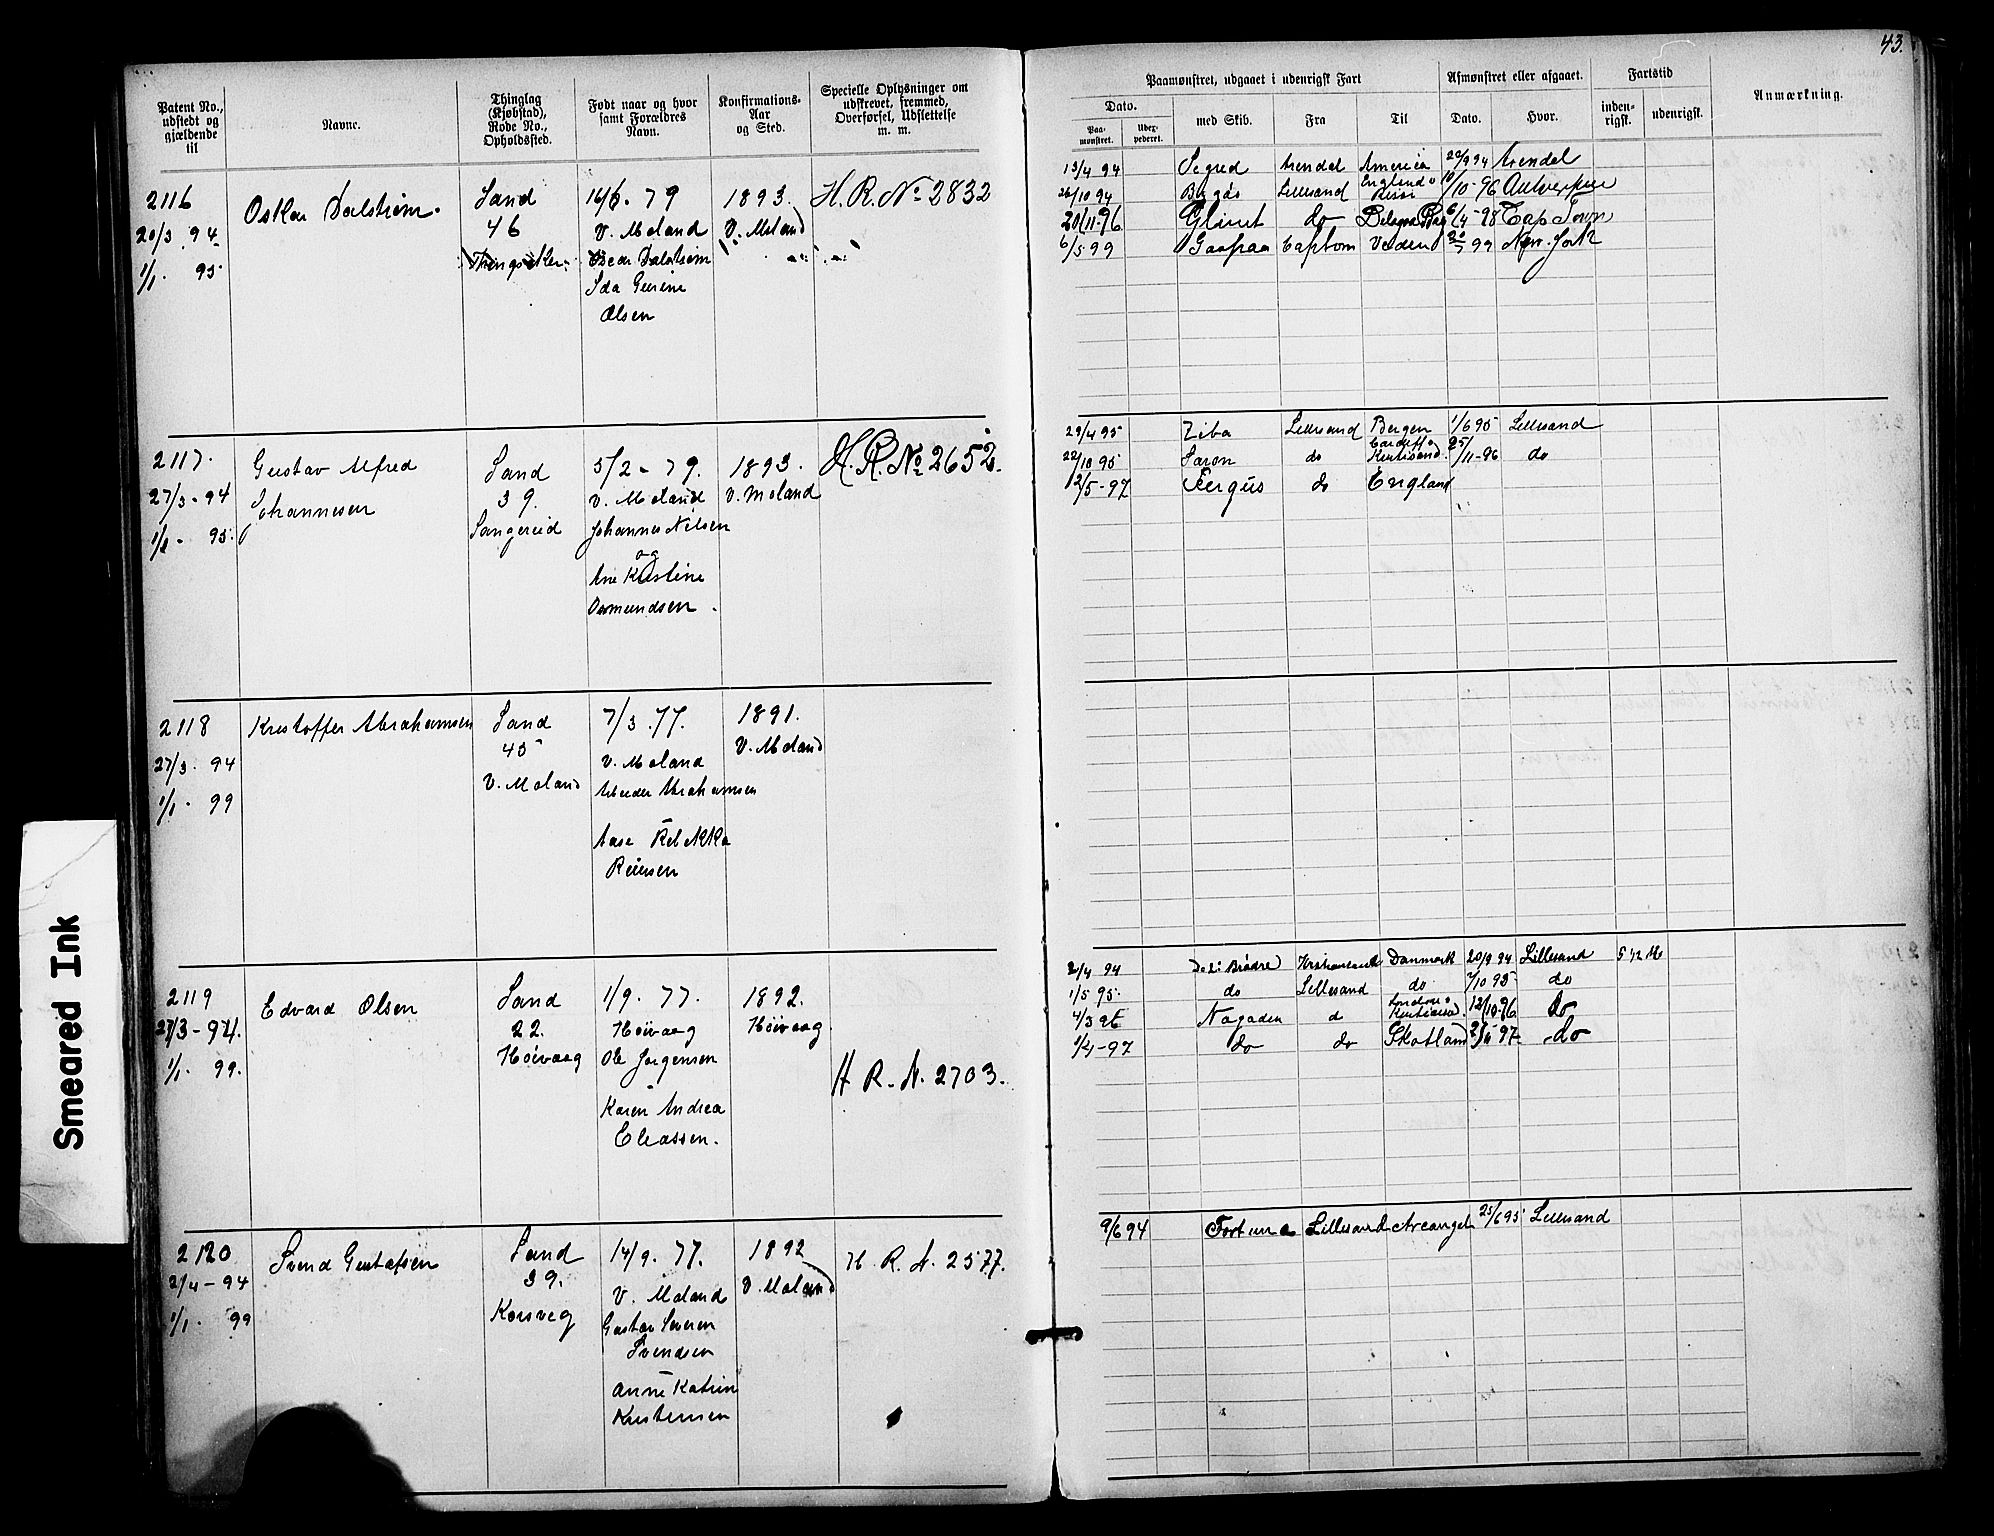 43.
Patent No., udstedt og gjældende til
Navne.
Thinglag (Kjøbstad), Rode No., Opholdssted.
Født naar og hvor samt Forældres Navn.
Konfirmations-Aar og Sted.
Specielle Oplysninger om udskrevet, fremmed, Overførsel, Udslettelse m. m.
Paamønstret, udgaaet i udenrigsk Fart
Afmønstret eller afgaaet.
Fartstid
Anmærkning.
Dato.
Paa-mønstret.
Uder-pederet.
med Skib.
Fra
Til
Dato.
Hvor.
inden-rigsk.
udenrigsk.
2116
20/3 94
1/1 95
Oskar Dalstrøm.
Sand
46
16/6. 79
V. Moland
Dalstrøm
Ida Gurine
Olsen
1893.
V. Moland
H. R. No 2832
13/4 94 Sigred Arendal America 20/9 94 Arendal
26/10 94 Lillesand England 10/10-96 Antverpen
20/11-96 do 6/4-98 Cap Town
6/5 99 99 New-York
2117.
27/3-94
1/1- 95.
Gustav Alfred
Johannesen
Sand
39.
Sangereid
5/2-79.
V. Moland
Johannes Nilsen
og
Ane Kristine
Osmundsen.
1893.
V. Moland
H. R. No 2652.
29/4 95 Ziba Lillesand Bergen 1/6 95 Lillesand
22/10 95 Saron do Cardiff Kristisand. 25/11-96 do
12/5-97 Fergus do England
2118
27/3. 94
1/1. 99
Kristoffer Abrahamsen
Sand
45
V. Moland
7/3. 77.
V. Moland
Arbeider Abrahamsen
Aase Rebekka
Reiersen
1891.
V. Moland
2119
27/3-94.
1/1. 99.
Edvard Olsen
Sand
22.
Høivaag
1/9. 77.
Høivaag
Ole Jørgensen
Karen Andrea
Eleassen.
1892.
Høivaag
H R. N. 2703.
2/4 94 De 2: Brødre Kristiansand Danmark 20/9 94 Lillesand 5 1/2 M
1/5 95. do Lillesand do 7/10 95 do
4/3 96 Nagaden d London 12/10-96 do
1/4-97 do do Skotland -97 do
2120
2/4-94
1/1. 99
Svend Gustafsen
Sand
39.
Korsveg
14/9. 77.
V. Moland
Gustav Severin
Svendsen
Anne Katrine
Kristensen
1892
V. Moland
H. R. N. 2577.
9/6 94 Fortuna Lillesand Arcangel 25/6 95 Lillesand
Smeared Ink